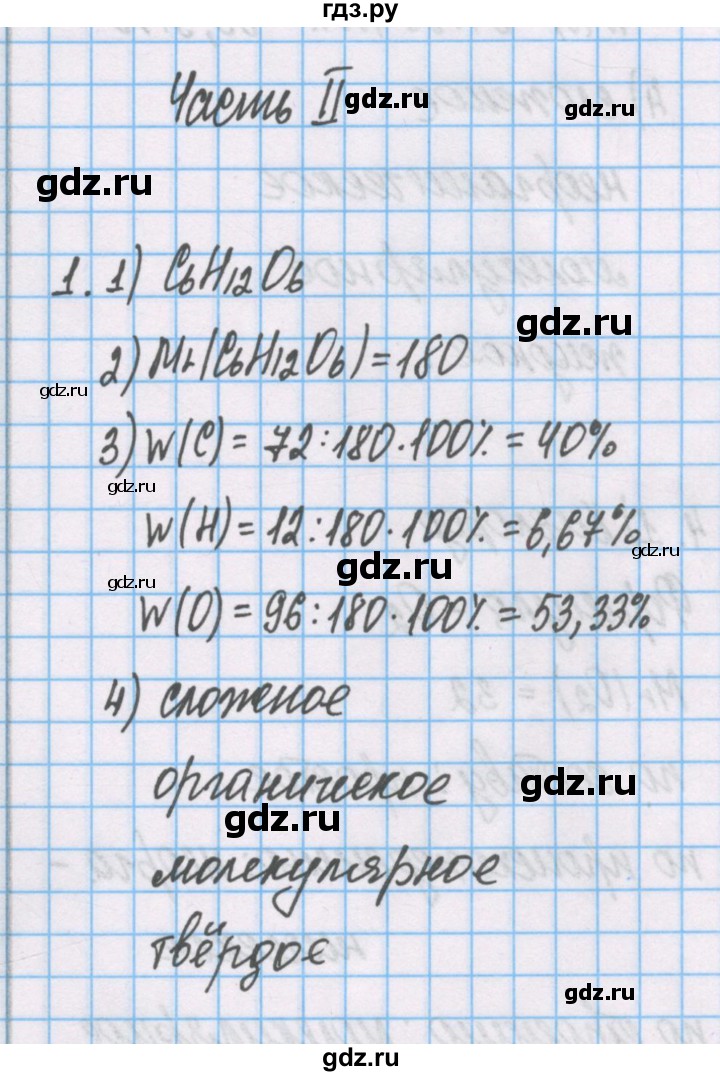 гдз.ру
Часть II
gdz.ru
gdz.ru
gdz.ru
1. 1) C6H12O6
gdz.ru
2) Mr(C6H12O6)=180
gdz.ru
3) W(C) = 72:180·100% = 40%
gdz.ru
W(H) = 12:180·100% = 6,67%
gdz.ru
gdz.ru
gdz.ru
W(O) = 96:180·100% = 53,33%
4) сложное
органическое
gdz.ru
gdz.ru
молекулярное
твёрдое
gdz.ru
gdz.ru